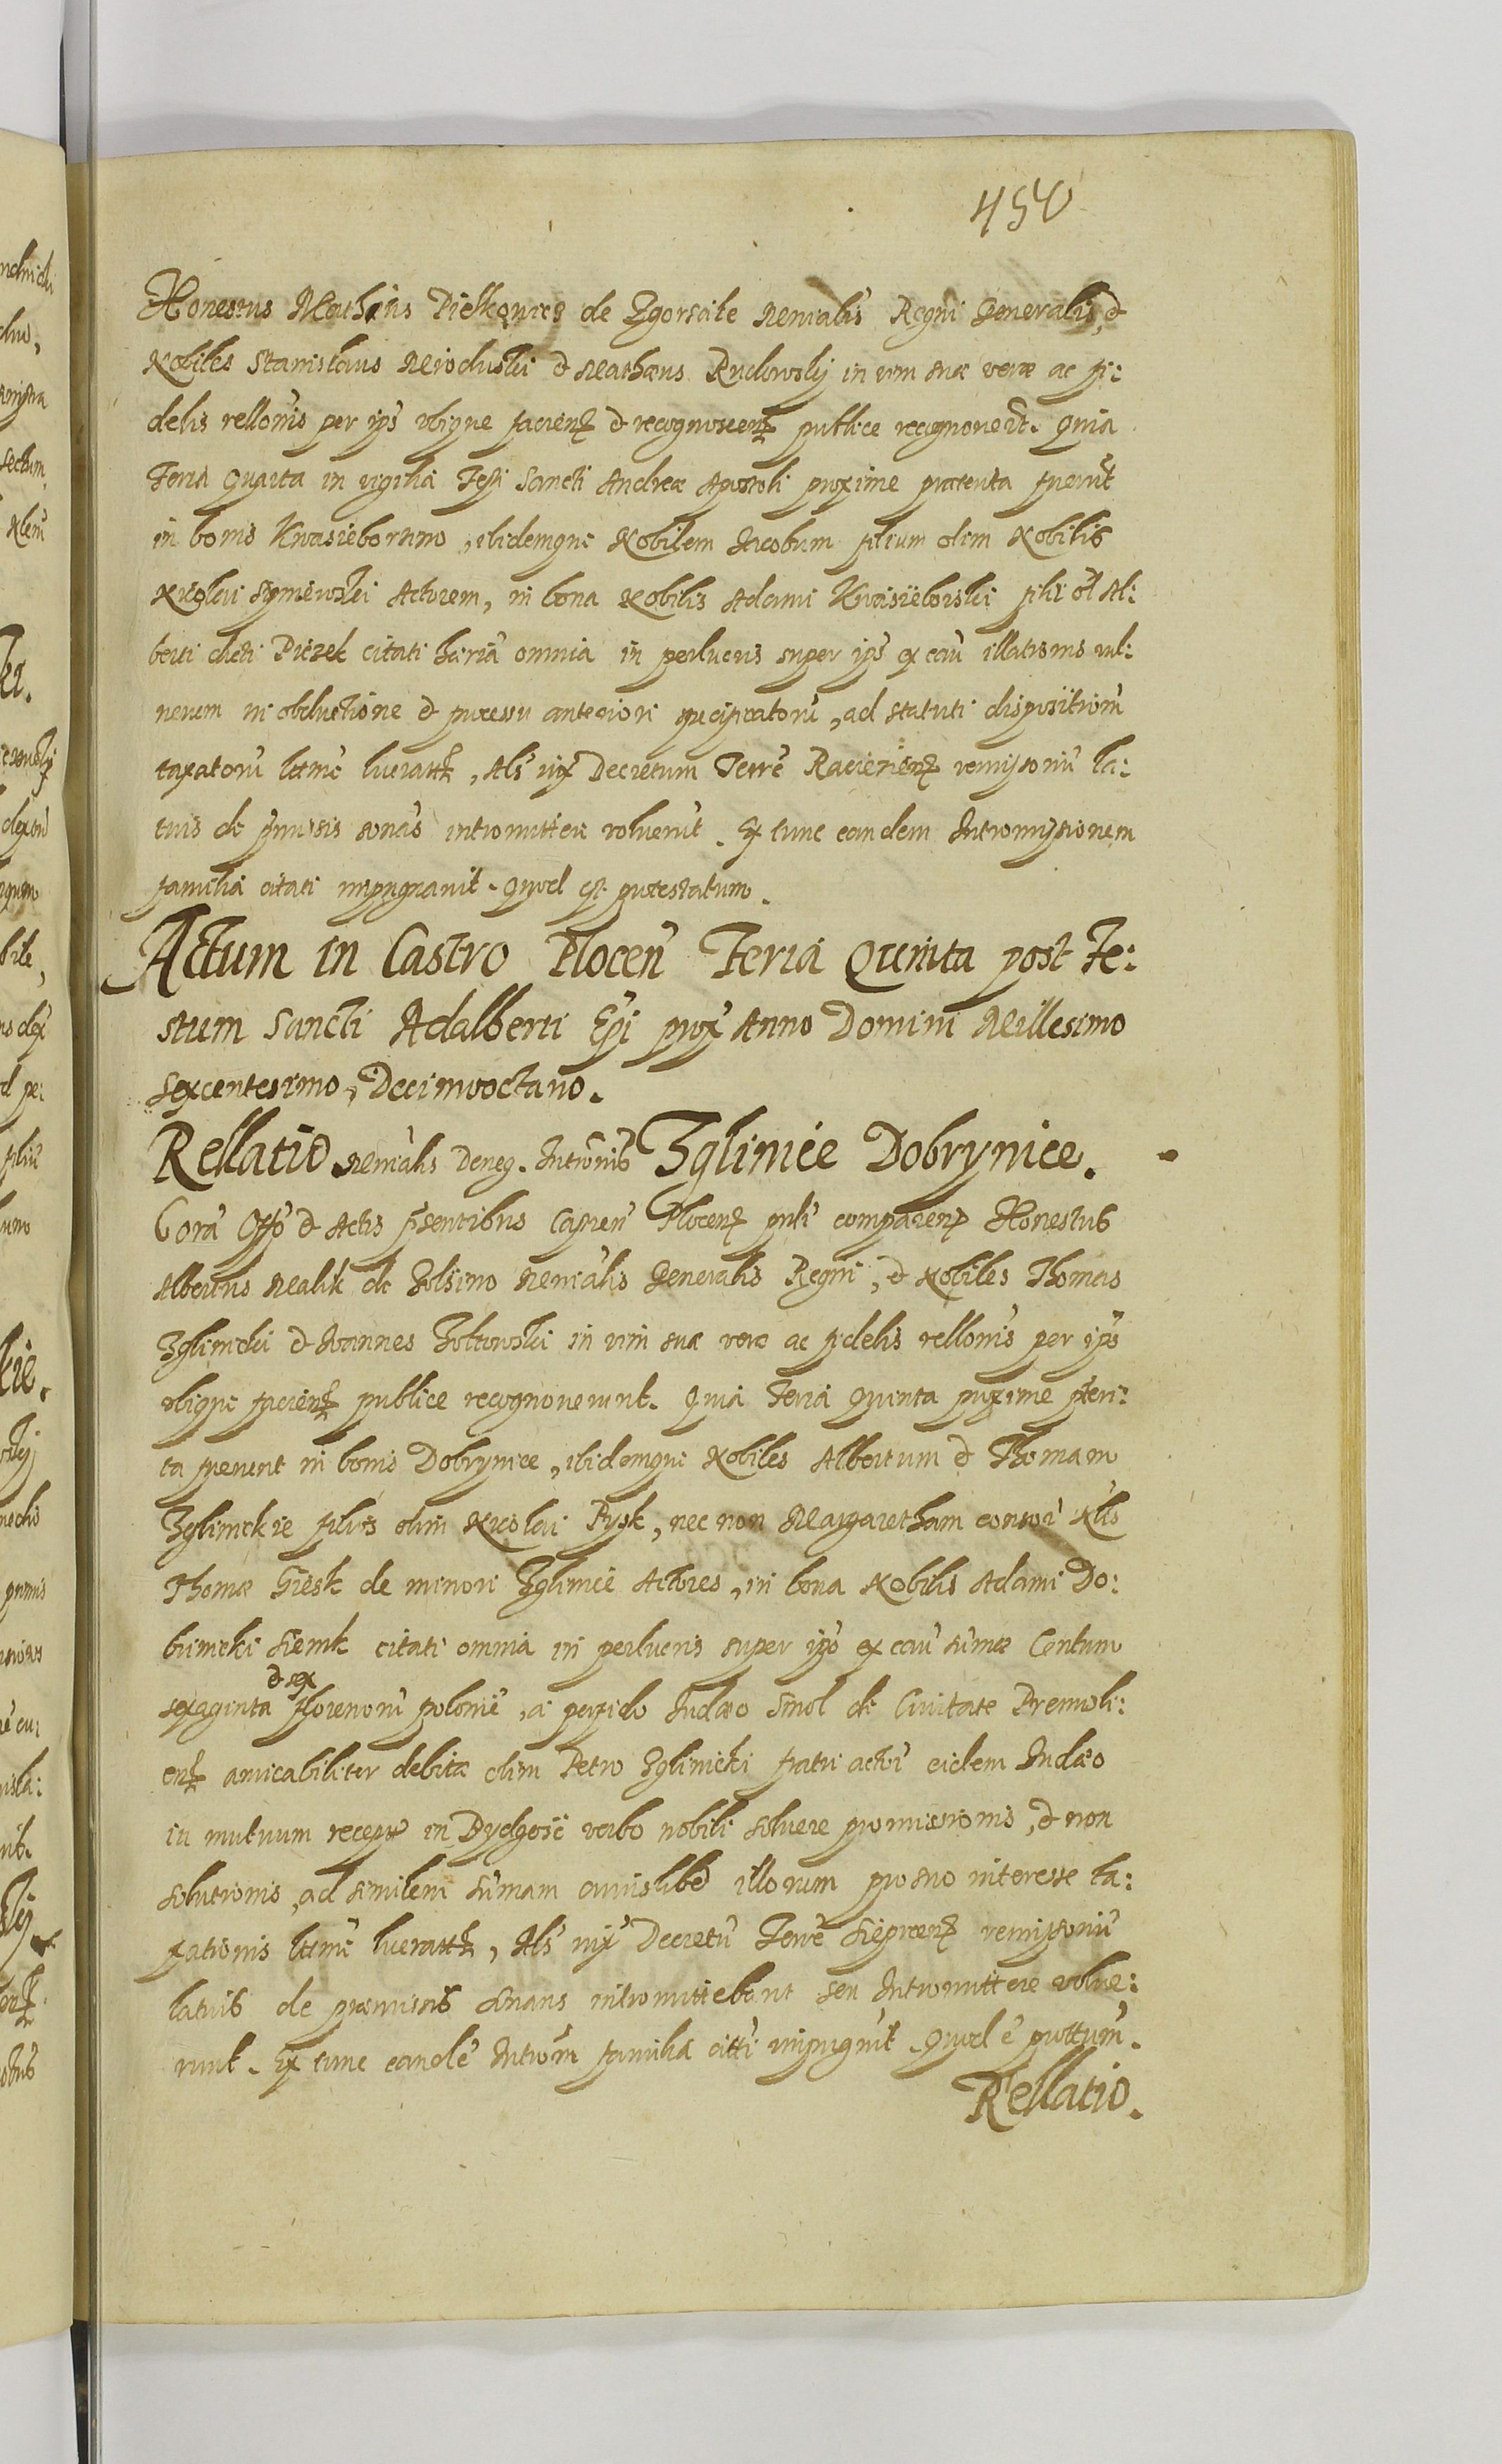 450
Honestus Mathias Pielkowicz de Zgorzale Menialis Regni Generalis, &
Nobiles Stanislaus Mioduski & Mathæus Rudowsky in vim suæ veræ ac fi:
delis rellonis per ips ubique facien & recognoscen publice recognoverut. Quia
Feria Quarta in vigilia Festi Sancti Andreæ Apostoli proxime præterita fuerut
in bonis Kwasieborzino, ibidemque Nobilem Jacobum filium olim Nobilis
Nicolai Actorem, in bona Nobilis Adami Kwasieborski filii ol Al:
berti dicti Piezek citati Hæria omnia in perlucris super ips ex cau illationis vul:
nerum in obductione & processu anteriori specificatoru, ad statuti dispositiom
taxatoru lttme lucratt, Als vix Decretum Terre Raciezien remissoriu la:
tius de pmissis sonas intromittere voluerut. Ex tunc eandem Intromissionem
familia citati impugnavit. Quod est protestatum.
Actum in Castro Plocen Feria Quinta post Fe:
stum Sancti Adalberti Epi prox Anno Domini Millesimo
Sexcentesimo, Decimooctavo.
Rellatio Menialis Deneg. Intronis Zglinice Dobrynice.
Cora Offo & Actis psentibus Castren Plocen psli comparen Honestus
Albertus Malik de Golsino Menialis Generalis Regni, & Nobiles Thomas
Zglinicki & Joannes Zoltowski in vim suæ veræ ac fidelis rellonis per ips
ubique facien publice recognoverunt. Quia Feria Quinta proxime pteri:
ta fuerunt in bonis Dobrynice, ibidemque Nobiles Albertum & Thomam
Zglinickie filios olim Nicolai Pysk, nec non Margaretham consor Nlis
Thomæ Giesk de minori Zglinice Actores, in bona Nobilis Adami Do:
brinicki Siemk citati omnia in perlucris super ipo ex cau sumæ Centum
sexaginta & sex florenoru polonie, a perfido Judæo Smol de Civitate Premisli:
en amicabiliter debitæ olim Petro Zglinicki fratri actoru eidem Judæo
in mutuum receptæ in Bydgosc verbo nobili solvere promissionis, & non
solutionis, ad similem sumam cuiuslibet illorum pro suo interesse ta:
xationis lttme lucratt, Als vix Decretu Terre Sieprcen remissoriu
latius de præmissis sonans intromittebant seu Intromittere volue:
runt. Ex tunc eande Introm familia citti impugnit. Quod e prottum.
Rellatio.